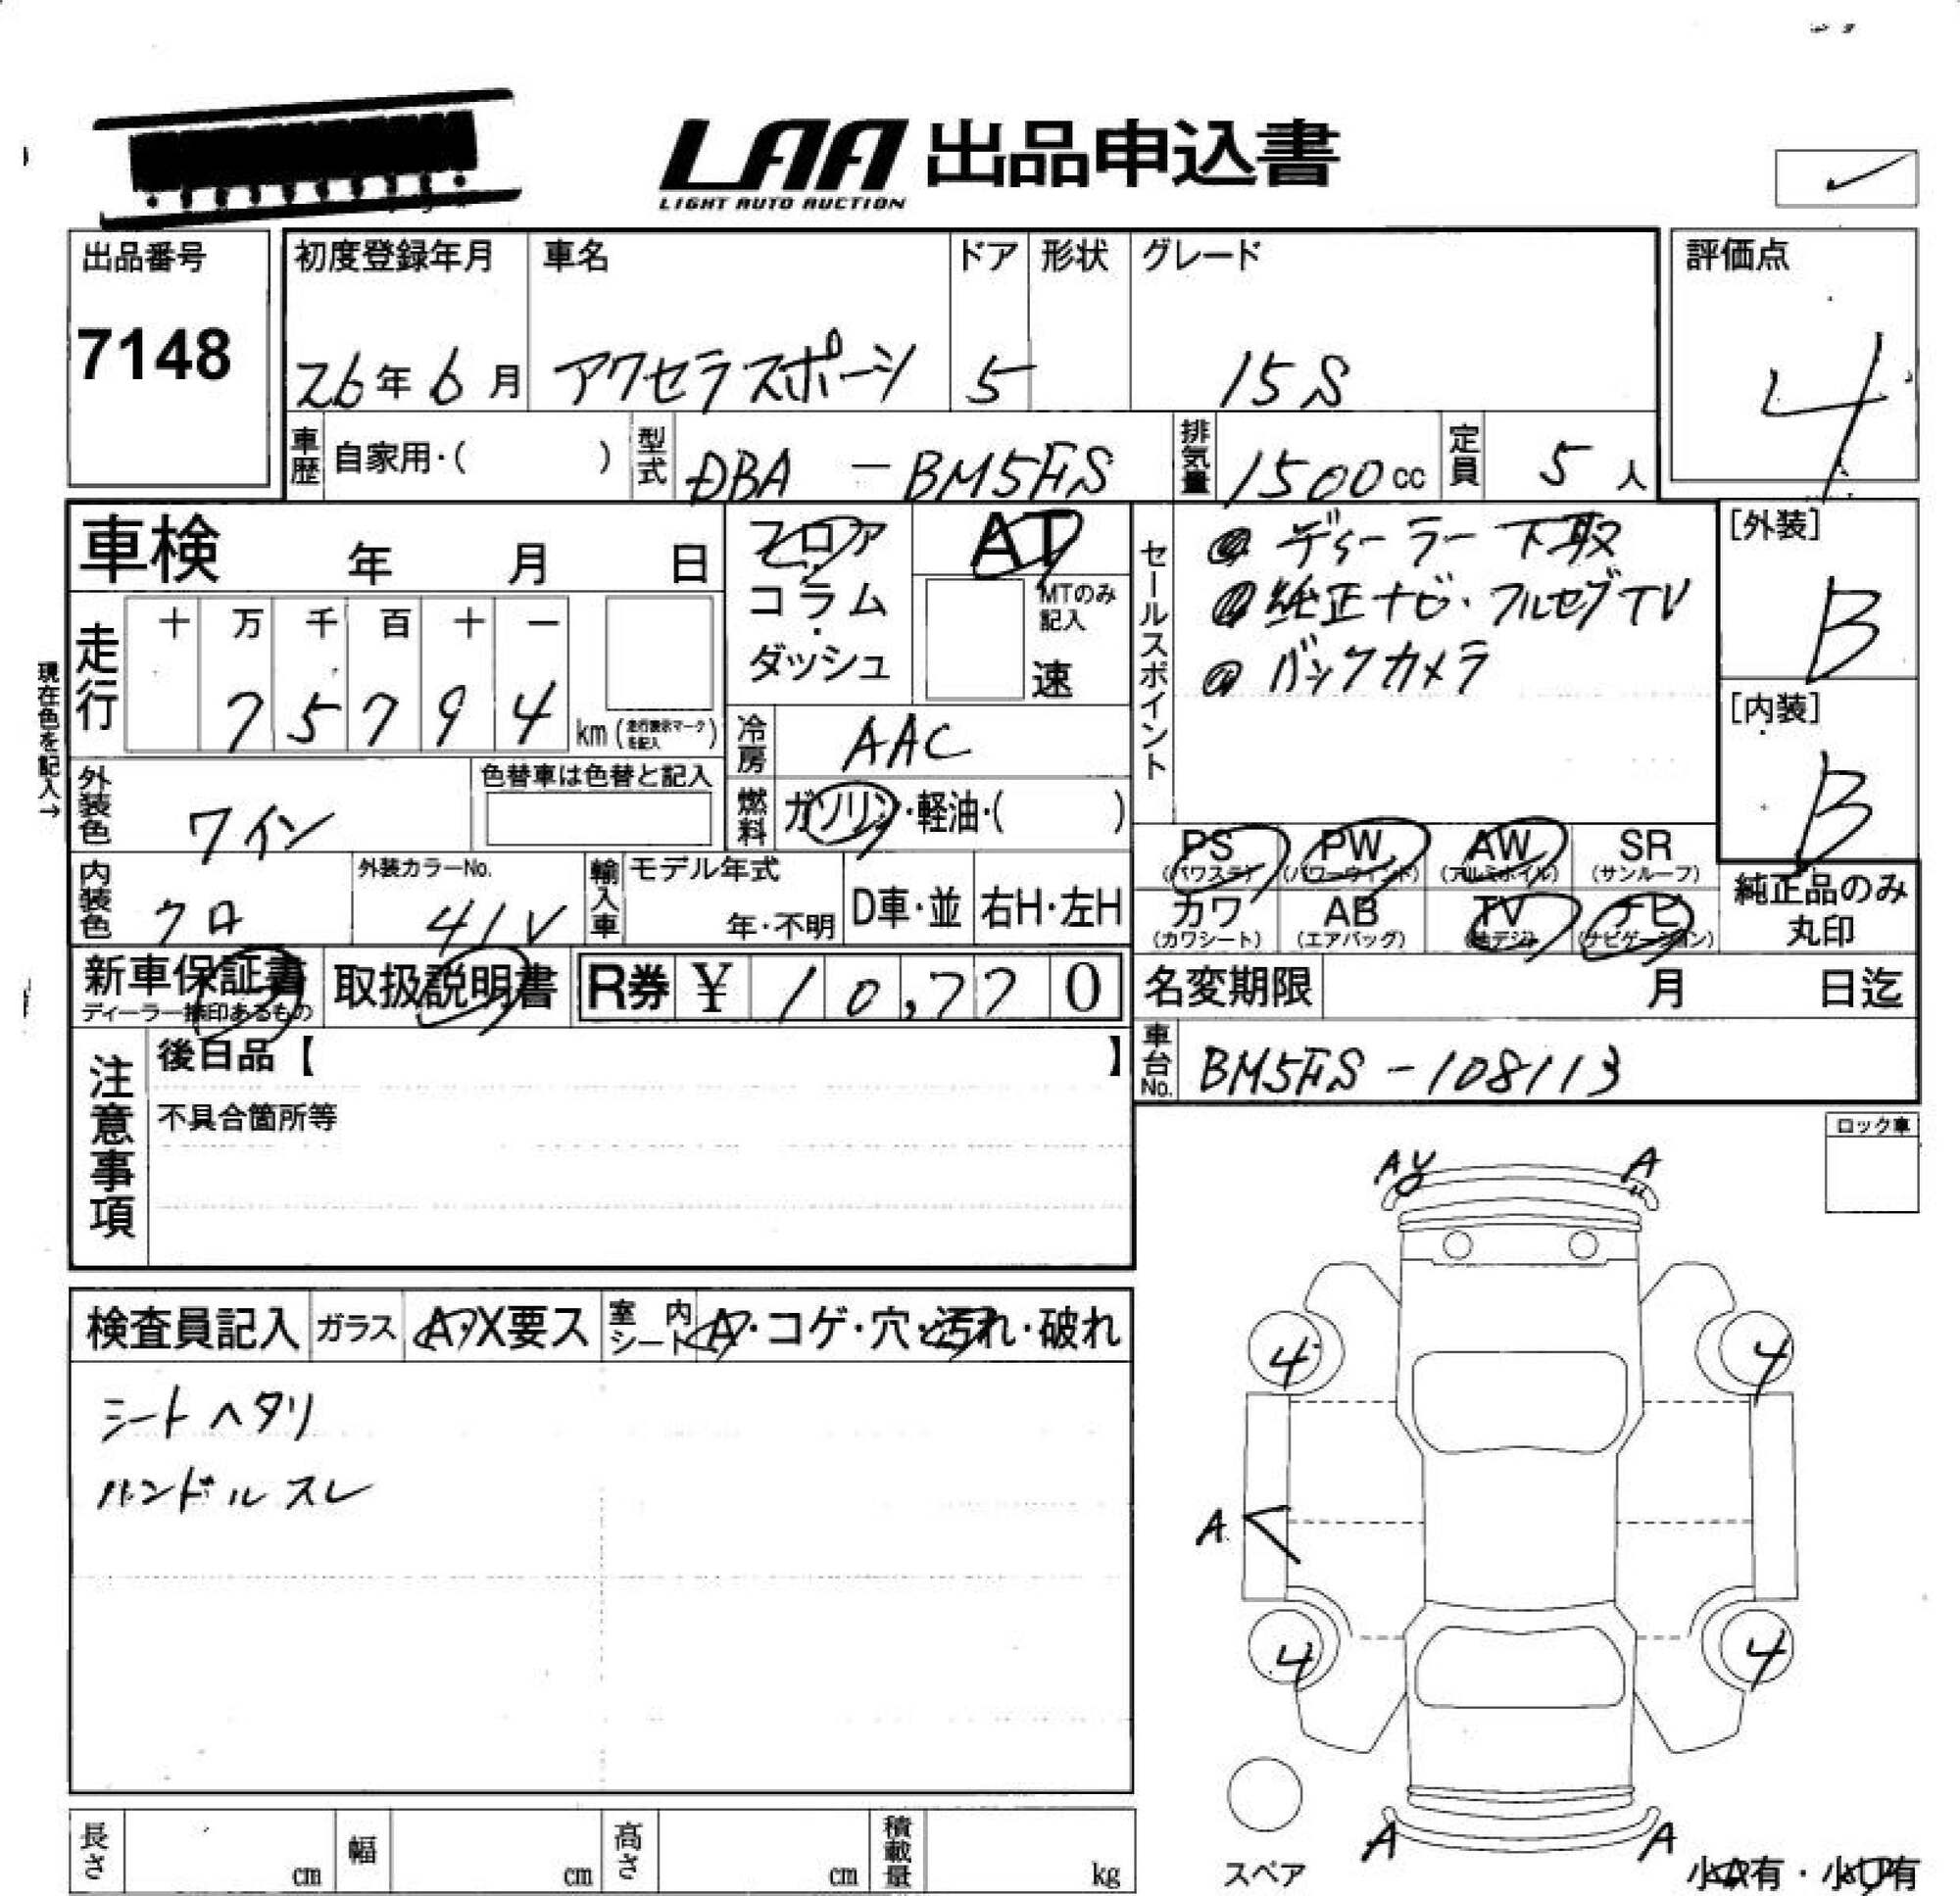 LAA 出品申込書
LIGHT AUTO AUCTION
出品番号
7148
初度登録年月
26年6月
車名
アクセラスポーツ
ドア
5
形状
グレード
15S
評価点
4
車歴 自家用・( )
型式 DBA - BM5FS
排気量 1500cc
定員 5人
車検 年 月 日
フロア
コラム・
ダッシュ
AT
MTのみ
記入
速
セールスポイント
ディーラー下取
純正ナビ・フルセグTV
バックカメラ
[外装]
B
[内装]
B
現在色を記入→
走行
十 万 千 百 十 一
7 5 7 9 4 km (走行表示マークを記入)
冷房 AAC
外装色 ワイン
色替車は色替と記入
燃料 ガソリン・軽油・( )
PS (パワステ)
PW (パワーウィンド)
AW (アルミホイル)
SR (サンルーフ)
カワ (カワシート)
AB (エアバッグ)
TV (地デジ)
ナビ (ナビゲーション)
純正品のみ
丸印
内装色 クロ
外装カラーNo.
41V
輸入車
モデル年式
年・不明
D車・並
右H・左H
新車保証書
ディーラー捺印あるもの
取扱説明書
R券 ¥ 10,770
名変期限 月 日迄
車台No. BM5FS-108113
注意事項
後日品【 】
不具合箇所等
ロック車
検査員記入
ガラス A・X要ス
室内シート A・コゲ・穴・汚れ・破れ
シートヘタリ
ハンドルスレ
AY A
4 4
A
4 4
A A
スペア
小A有・小U有
長さ cm
幅 cm
高さ cm
積載量 kg